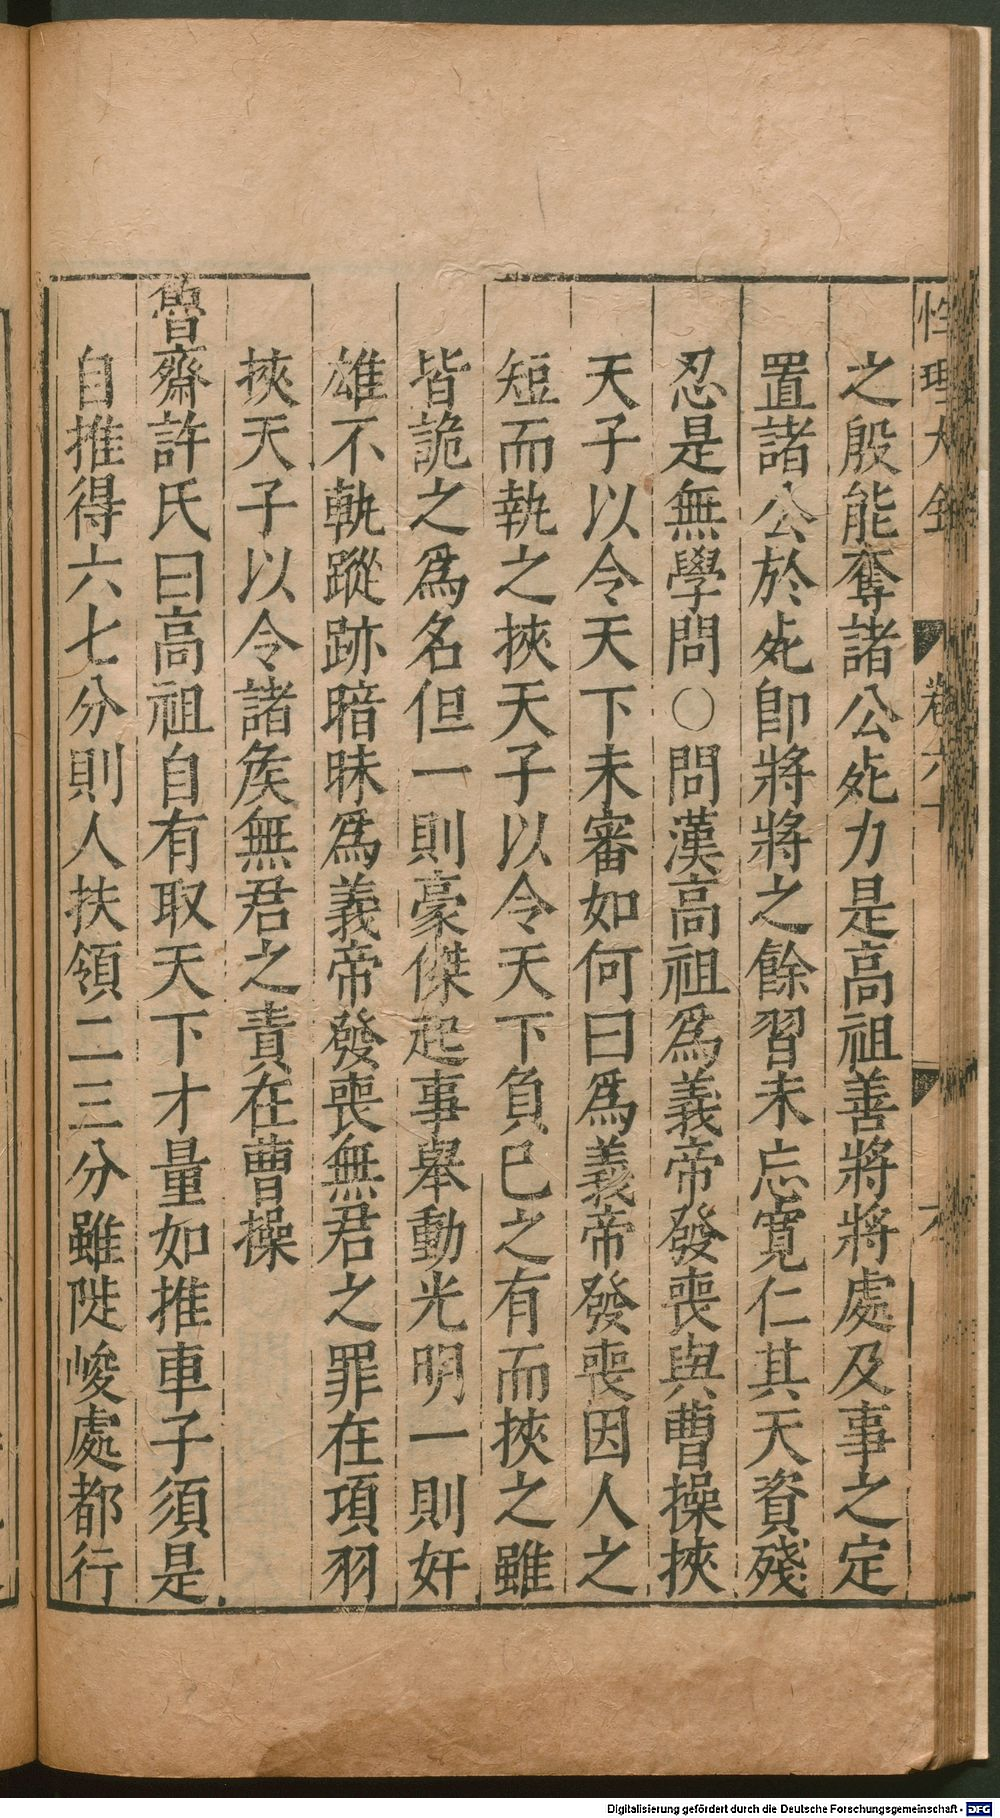 性理大全 卷六十 六
之殷能奪諸公死力是高祖善將將處及事之定
置諸公於死卽將將之餘習未忘寬仁其天資殘
忍是無學問○問漢高祖爲義帝發喪與曹操挾
天子以令天下未審如何曰爲義帝發喪因人之
短而執之挾天子以令天下負已之有而挾之雖
皆詭之爲名但一則豪傑起事舉動光明一則奸
雄不軌蹤跡暗昧爲義帝發喪無君之罪在項羽
挾天子以令諸矦無君之責在曹操
魯齋許氏曰高祖自有取天下才量如推車子須是
自推得六七分則人扶領二三分雖陡峻處都行
Digitalisierung gefördert durch die Deutsche Forschungsgemeinschaft - DFG